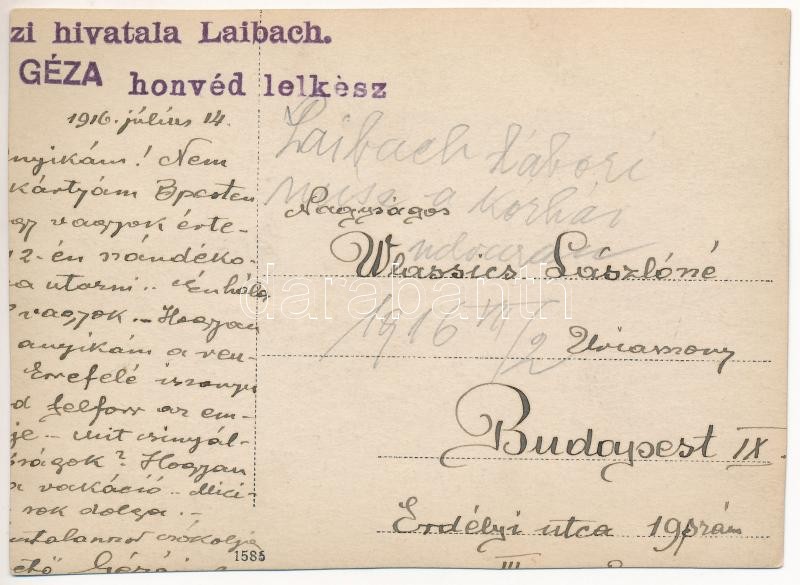 zi hivatala Laibach.
GÉZA honvéd lelkész
1916. július 14.
nyikám! Nem
kártyám Bpesten
gy vagyok érte-
12-én szándéko-
a utazni.. Én hála
vagyok.. Hogyan
anyikám a ven-
Errefelé iszonyú
d felforr az em-
je – mit csinyál-
ságok? Hogyan
a vakáció.. Mici-
sok dolga.-
ntalanszor csókolja
ető Géza
1585
Laibach tábori
a kórház
udvarán
1916 VII/2
Nagyságos
Wlassics Lászlóné
Úriasszony
Budapest IX.
Erdélyi utca 19 szám
III
darabanth